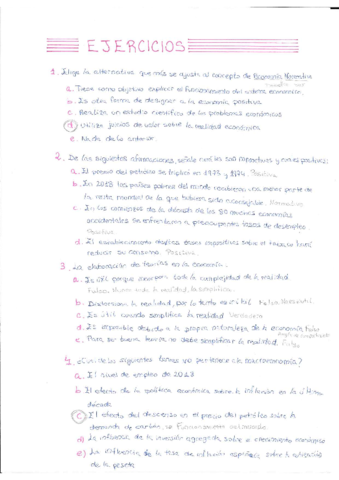 EJERCICIOS
1. Elige la alternativa que más se ajusta al concepto de Economía Normativa
a. Tiene como objetivo explicar el funcionamiento del sistema económico.
b. Es otra forma de designar a la economía positiva.
c. Realiza un estudio científico de los problemas económicos
d. Utiliza juicios de valor sobre la realidad económica.
e. Nada de lo anterior.
2. De las siguientes afirmaciones, señale cuales son normativas y cuales positivas:
a. El precio del petróleo se triplicó en 1973 y 1974. Positiva
b. En 2018 los países pobres del mundo recibieron una menor parte de
la renta mundial de la que hubiera sido
c. En los comienzos de la década de los 80 muchas economías
occidentales se enfrentaron a preocupantes tasas de desempleo
Positiva
d. El
reducir su consumo. Positiva
3. La elaboración de teorías en la economía.
a. Es útil porque incorpora toda la complejidad de la realidad
Falso
b. Distorsiona la realidad, por lo tanto es inútil Falso
c. Es útil cuando simplifica la realidad Verdadero
d. Es imposible debido a la propia naturaleza de la economía Falso
e. Para ser buena teoría no debe simplificar la realidad. Falso
4. ¿Cuál de los siguientes temas no pertenece a la macroeconomía?
a. El nivel de empleo de 2018
b. El efecto de la política económica sobre la inflación en la última
década
c. El efecto del descenso en el precio del petróleo sobre la
demanda de carbón.
d) La influencia de la inversión agregada sobre el crecimiento económico
e) La influencia de la tasa de inflación española sobre la cotización
de la peseta